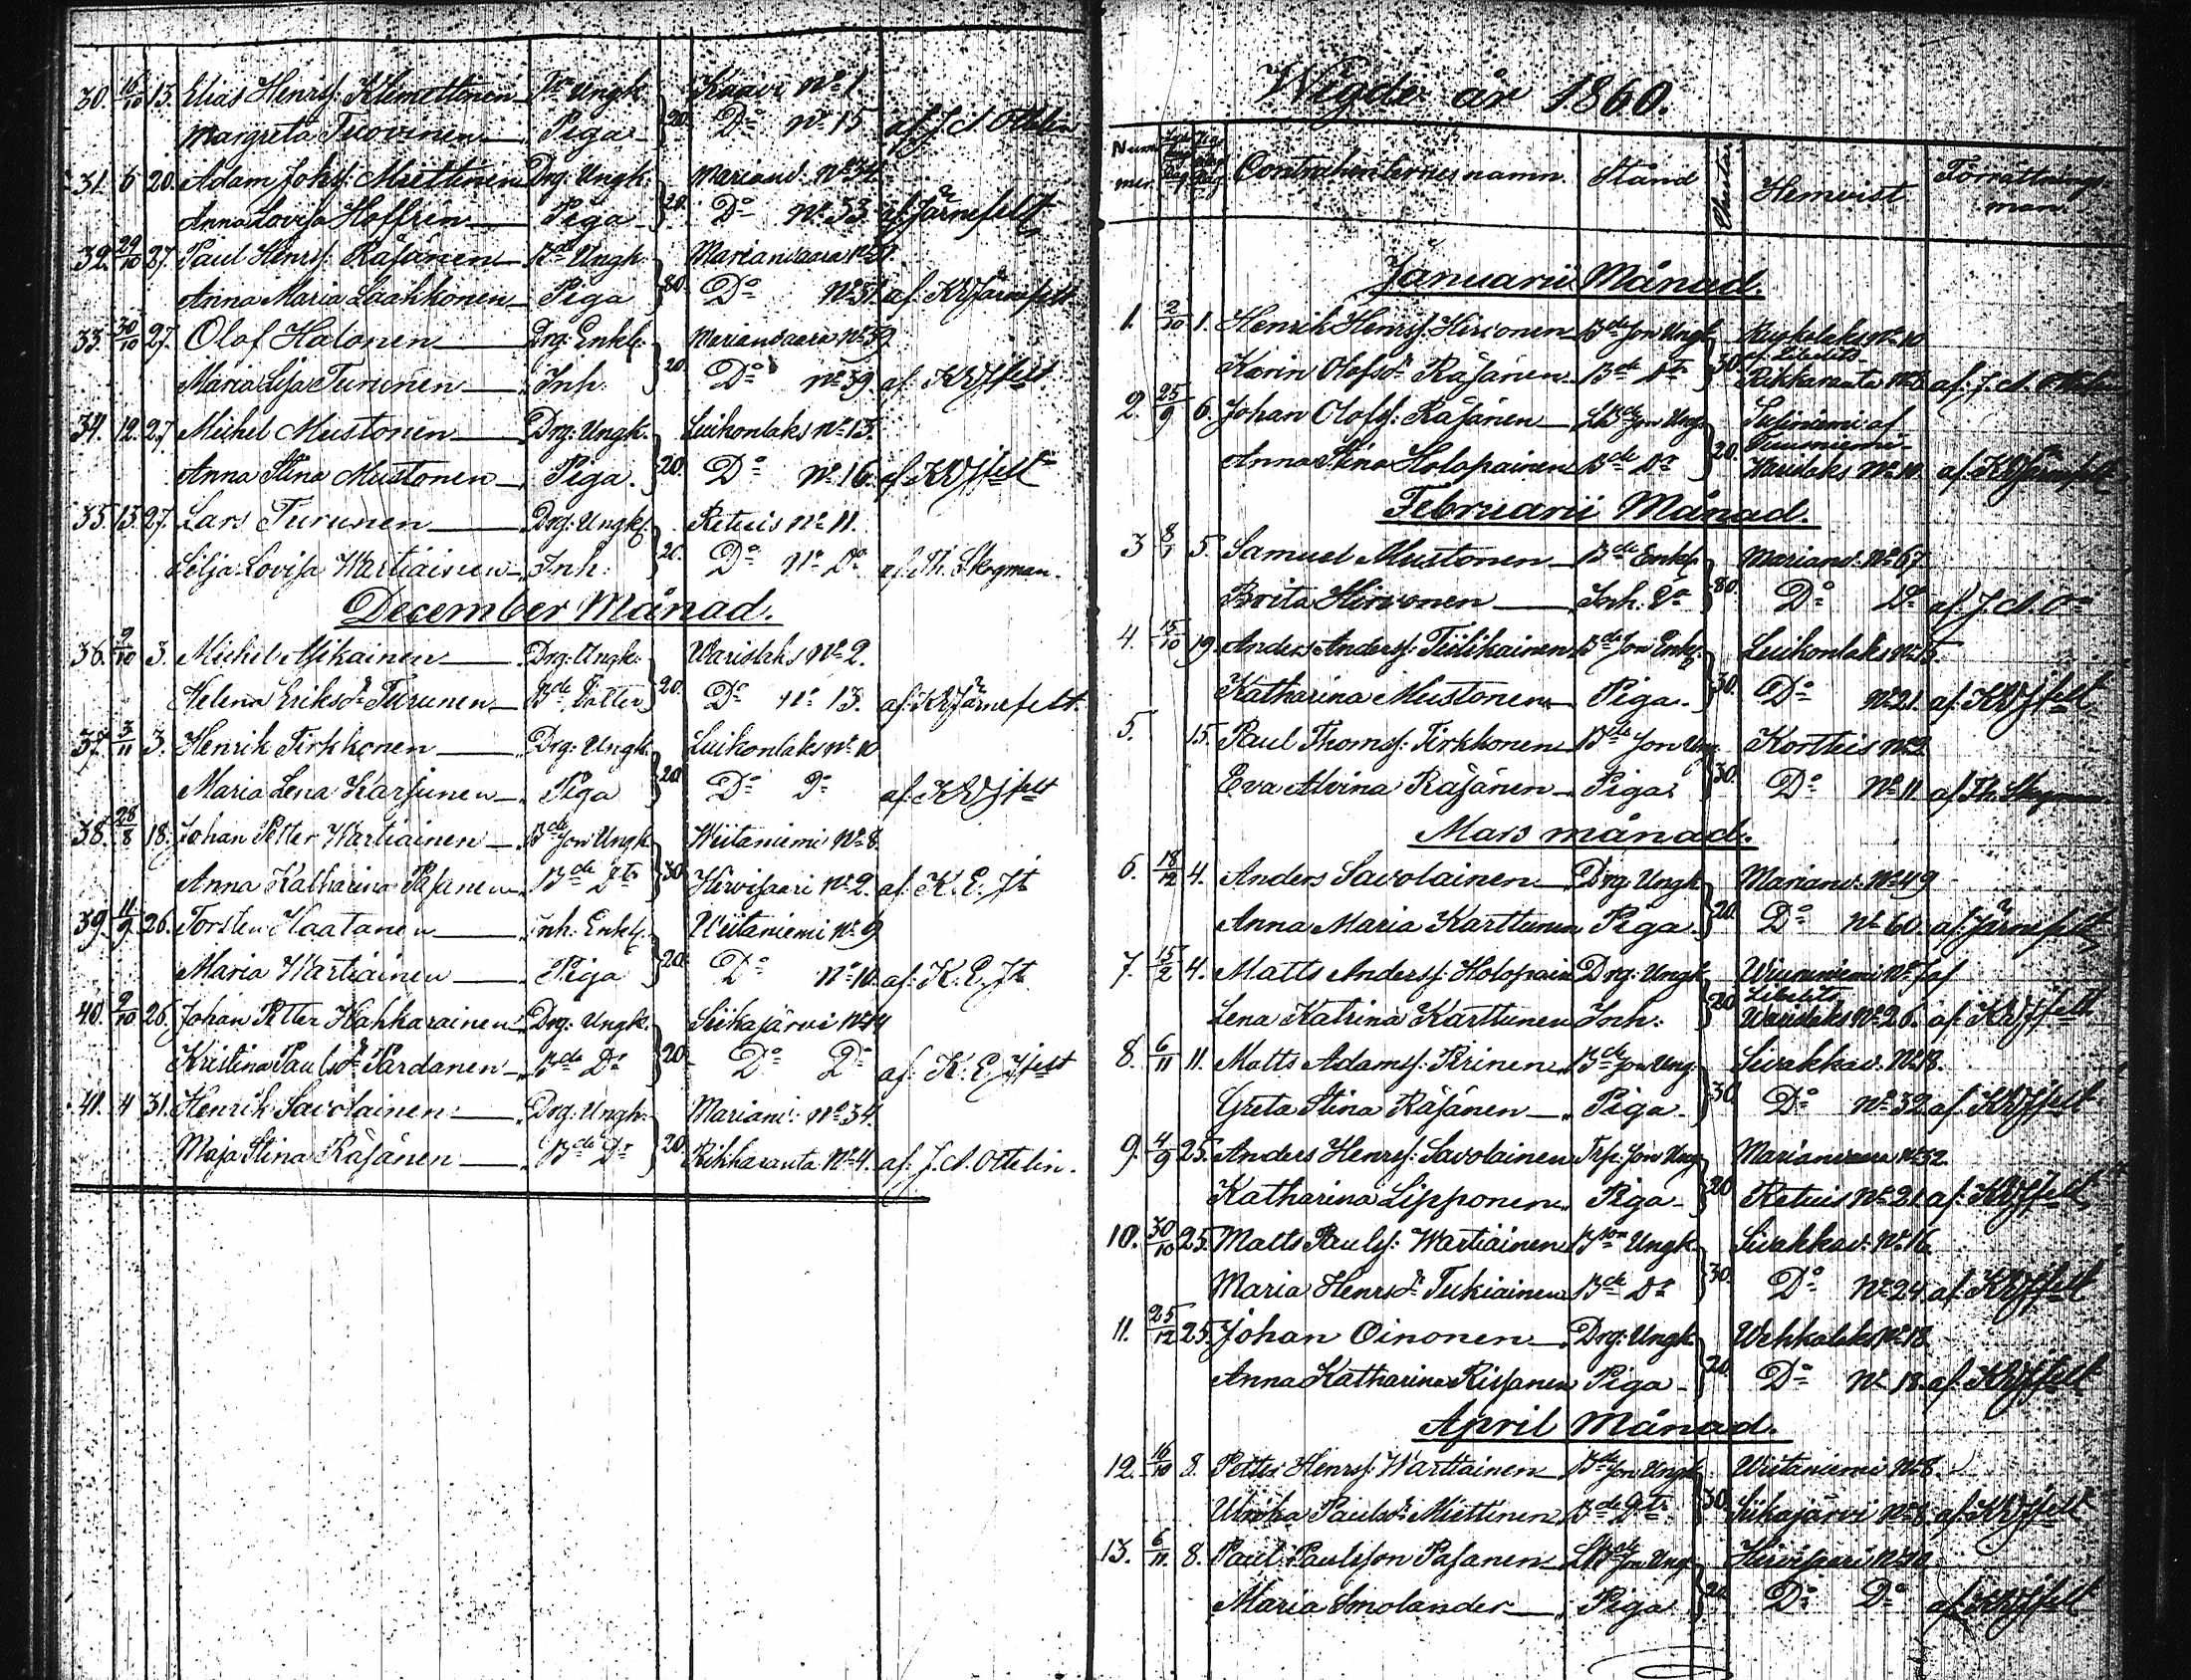 30. 16/10 13. Elias Henrsf: Klemettinen Ungk. Kaavi No 1.
Margreta Tuovinen Piga 20. Do No 15 af J. A. Ottelin
31. 6 20. Adam Johsf: Miettinen Drg: Ungk. Marianv. No 34.
Anna Lovisa Hoffren Piga 20. Do No 53. af Järnefelt
32. 29/10 27. Paul Henrsf: Räsänen Bde Ungk. Marianvaara No 37.
Anna Maria Laakkonen Piga 80. Do No 31. af: KEJärnefelt
33. 30/10 27. Olof Halonen Drg: Enkl. Marianvaara No 39.
Maria Lisa Turunen Inh. 20. Do No 39. af: KEJfelt
34. 12. 27. Michel Mustonen Drg: Ungk. Luikonlaks No 13.
Anna Stina Mustonen Piga. 20. Do No 16. af: KEJfelt
35. 13. 27. Lars Turunen Drg: Ungk. Retuis No 11.
Lovisa Wartiainen Inh: 20. Do No Do af. Th. Stegman.
December Månad.
36. 9/10 3. Michel Mikainen Drg: Ungk: Warislaks No 2.
Helena Eriksdr Turunen Bde Dotter 20. Do No 13. af: KEJärnefelt.
37. 3/11 3. Henrik Tirkkonen Drg: Ungk. Luikonlaks No 10
Maria Lena Karjunen Piga 20. Do Do af: KEJfelt
38. 28/8 18. Johan Petter Wartiainen Bde Son Ungk. Wiitaniemi No 8.
Anna Katharina Pasanen Bde Dtr 30. Hirvisaari No 2. af. K. E. Jt
39. 11/9 26. Torsten Kaatanen Inh. Enkl. Wiitaniemi No 9
Maria Wartiainen Piga 20. Do No 10. af: K. E. Jt.
40. 2/10 26. Johan Petter Hahkarainen Drg: Ungk. Siikajärvi No 14
Kristina Paulsdr Pardanen Bde Dr 20. Do Do af. K. E. Jfelt
41. 4 31. Henrik Savolainen Drg: Ungk. Marianv: No 34.
Maja Stina Räsänen Bde Dr 20. Rikkaranta No 4. af. J. A. Ottelin.
Wigde år 1860.
Contrahenternes namn. Stånd Hemvist Förrättnings-
man.
Januarii Månad.
1. 2/10 1. Henrik Henrsf: Hirvonen Bde Son Ungk No 10
af. Libelits
Karin Olofsdr Räsänen Bde Dtr 30. Rikkaranta No 8 af: J. A. Ottelin
2. 25/9 6. Johan Olofsf: Räsänen Son Ung. af
Anna Stina Holopainen Bde Dr 20. Warislaks No 10. af: KEJärnefelt
Februarii Månad.
3 8/1 5. Samuel Mustonen Bde Enkl. Marianv: No 67
Brita Hirvonen Inh. Do 80. Do Do af J. A. On
4. 15/10 19. Anders Andersf: Tiilikainen Bde Son Enkl. Luikonlaks No 15.
Katharina Mustonen Piga. 30. Do No 21. af KEJfelt
5. 15. Paul Thomsf: Tirkkonen Bde Son Ung. Korttis No 2
Eva Alvina Räsänen Piga 30. Do No 11. af Th. Stegman
Mars månad.
6. 18/12 4. Anders Savolainen Drg: Ungk Marianv: No 49
Anna Maria Karttunen Piga. 20. Do No 60. af: Järnefelt
7. 15/2 4. Matts Andersf: Holopain Drg: Ungk No 7 af
Libelits
Lena Katrina Karttunen Inh: 20. Warislaks No 26. af: KEJfelt
8. 6/11 11. Matts Adamsf: Pirinen Bde Son Ung. Sivakkav. No 18.
Greta Stina Räsänen Piga 30. Do No 32 af: KEJfelt
9. 4/9 25. Anders Henrsf: Savolainen Trp. Son Ung Marianvaara No 32.
Katharina Lipponen Piga 20. Retuis No 21. af: KEJfelt
10. 30/10 25. Matts Paulsf: Wartiainen Bson Ungk Sivakkav: No 16.
Maria Henrsdr Tukiainen Bde Dr 30. Do No 24. af: KEJfelt
11. 25/12 25. Johan Oinonen Drg: Ungk Wehkalaks No 18.
Anna Katharina Rissanen Piga 20. Do No 18. af: KEJfelt
April Månad.
12. 16/10 8. Petter Henrsf: Wartiainen Bde Son Ungk Wiitaniemi No 8.
Ulrika Paulsdr Miettinen Bde Dtr 30. Siikajärvi No 8. af: KEJfelt
13. 6/11 8. Paul Paulsson Pasanen Son Ung Hirvisaari No 10.
Maria Smolander Piga 20. Do Do af: KEJfelt